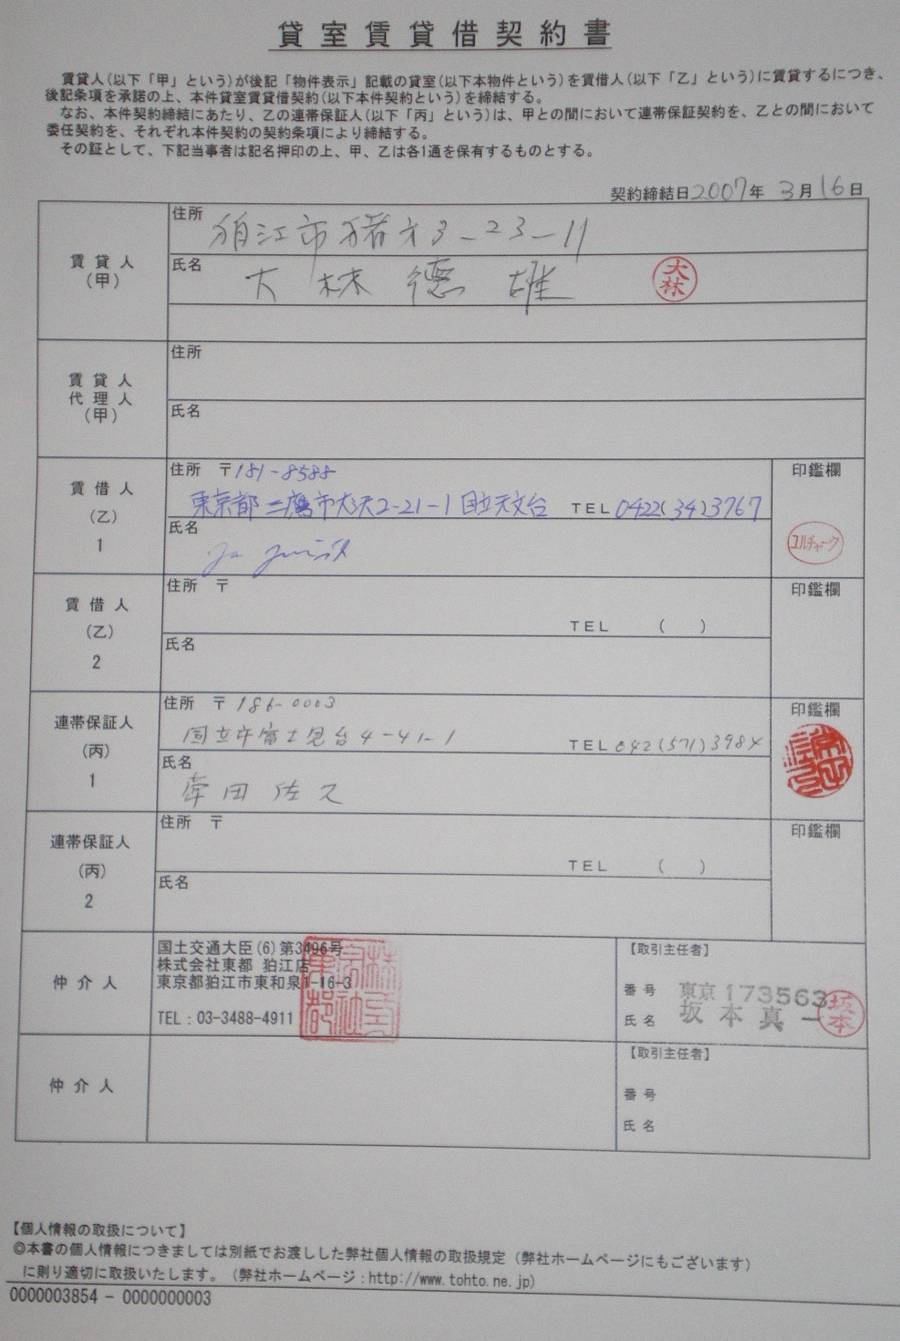 貸室賃貸借契約書
賃貸人(以下「甲」という)が後記「物件表示」記載の貸室(以下本物件という)を賃借人(以下「乙」という)に賃貸するにつき、
後記条項を承諾の上、本件貸室賃貸借契約(以下本件契約という)を締結する。
なお、本件契約締結にあたり、乙の連帯保証人(以下「丙」という)は、甲との間において連帯保証契約を、乙との間において
委任契約を、それぞれ本件契約の契約条項により締結する。
その証として、下記当事者は記名押印の上、甲、乙は各1通を保有するものとする。
契約締結日2007年 3月16日
賃貸人
(甲)
住所
狛江市猪方3-23-11
氏名
大林 徳雄
大林
賃貸人
代理人
(甲)
住所
氏名
賃借人
(乙)
1
住所 〒181-8588
東京都三鷹市大沢2-21-1国立天文台 TEL 0422(34)3767
氏名
印鑑欄
ユルチャーク
賃借人
(乙)
2
住所 〒
TEL ( )
氏名
印鑑欄
連帯保証人
(丙)
1
住所 〒186-0003
国立市富士見台4-41-1 TEL 042(571)3984
氏名
幸田 佐久
印鑑欄
連帯保証人
(丙)
2
住所 〒
TEL ( )
氏名
印鑑欄
仲介人
国土交通大臣(6)第3496号
株式会社東都 狛江店
東京都狛江市東和泉1-16-3
TEL:03-3488-4911
【取引主任者】
番号 東京173563
氏名 坂本真一
坂本
仲介人
【取引主任者】
番号
氏名
【個人情報の取扱について】
◎本書の個人情報につきましては別紙でお渡しした弊社個人情報の取扱規定(弊社ホームページにもございます)
に則り適切に取扱いたします。(弊社ホームページ:http://www.tohto.ne.jp)
0000003854 - 0000000003